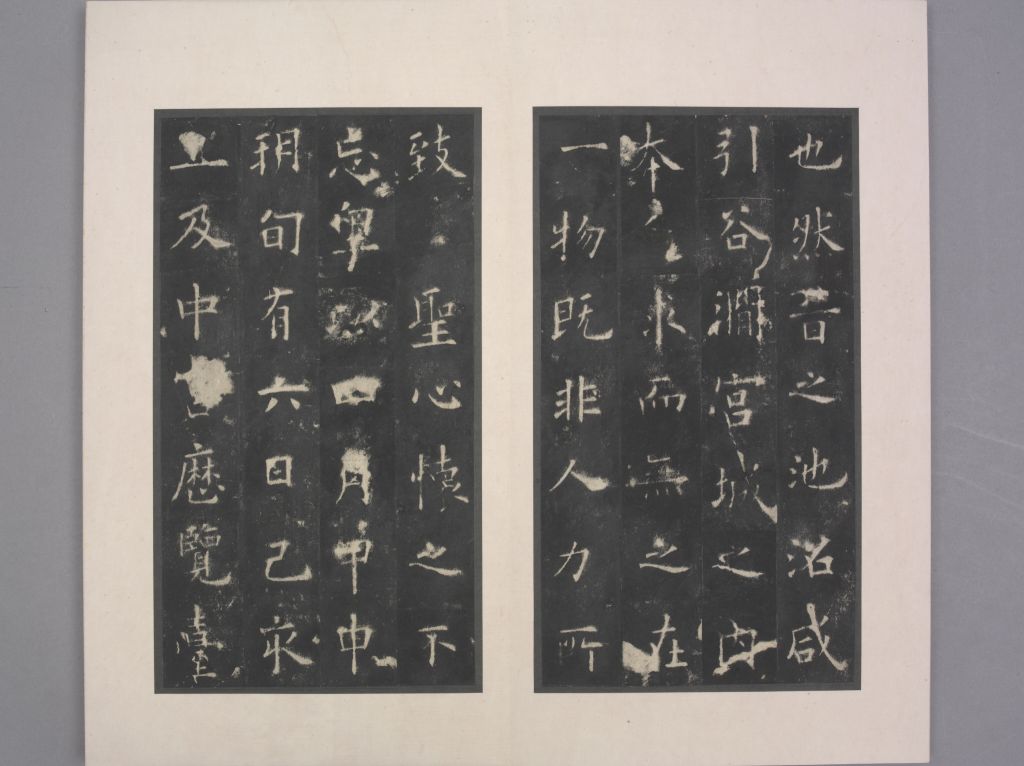 也然昔之池沼咸
引谷澗宮城之內
本乏求而無之在
一物既非人力所
致聖心懷之不
忘粵以四月甲申
朔旬有六日己亥
上及中宮歷覽臺